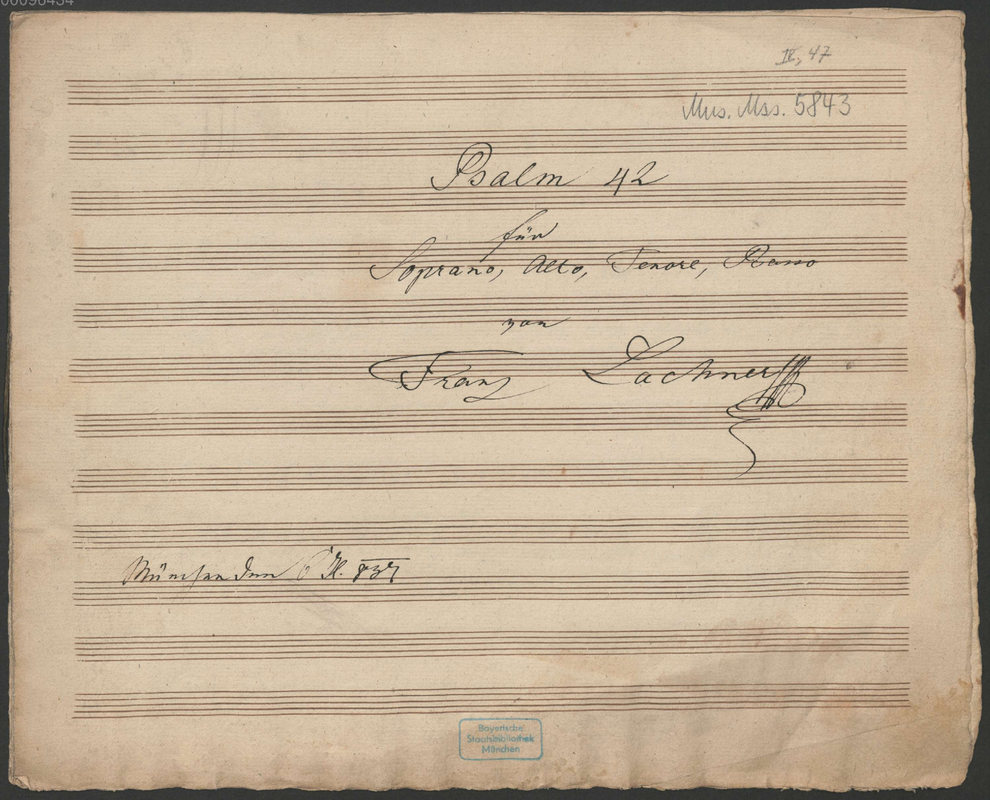 00098434
IX, 47
Mus. Mss. 5843
Psalm 42
für
Soprano, Alto, Tenore, Basso
von
Franz Lachner
München den 6 837
Bayerische
Staatsbibliothek
München